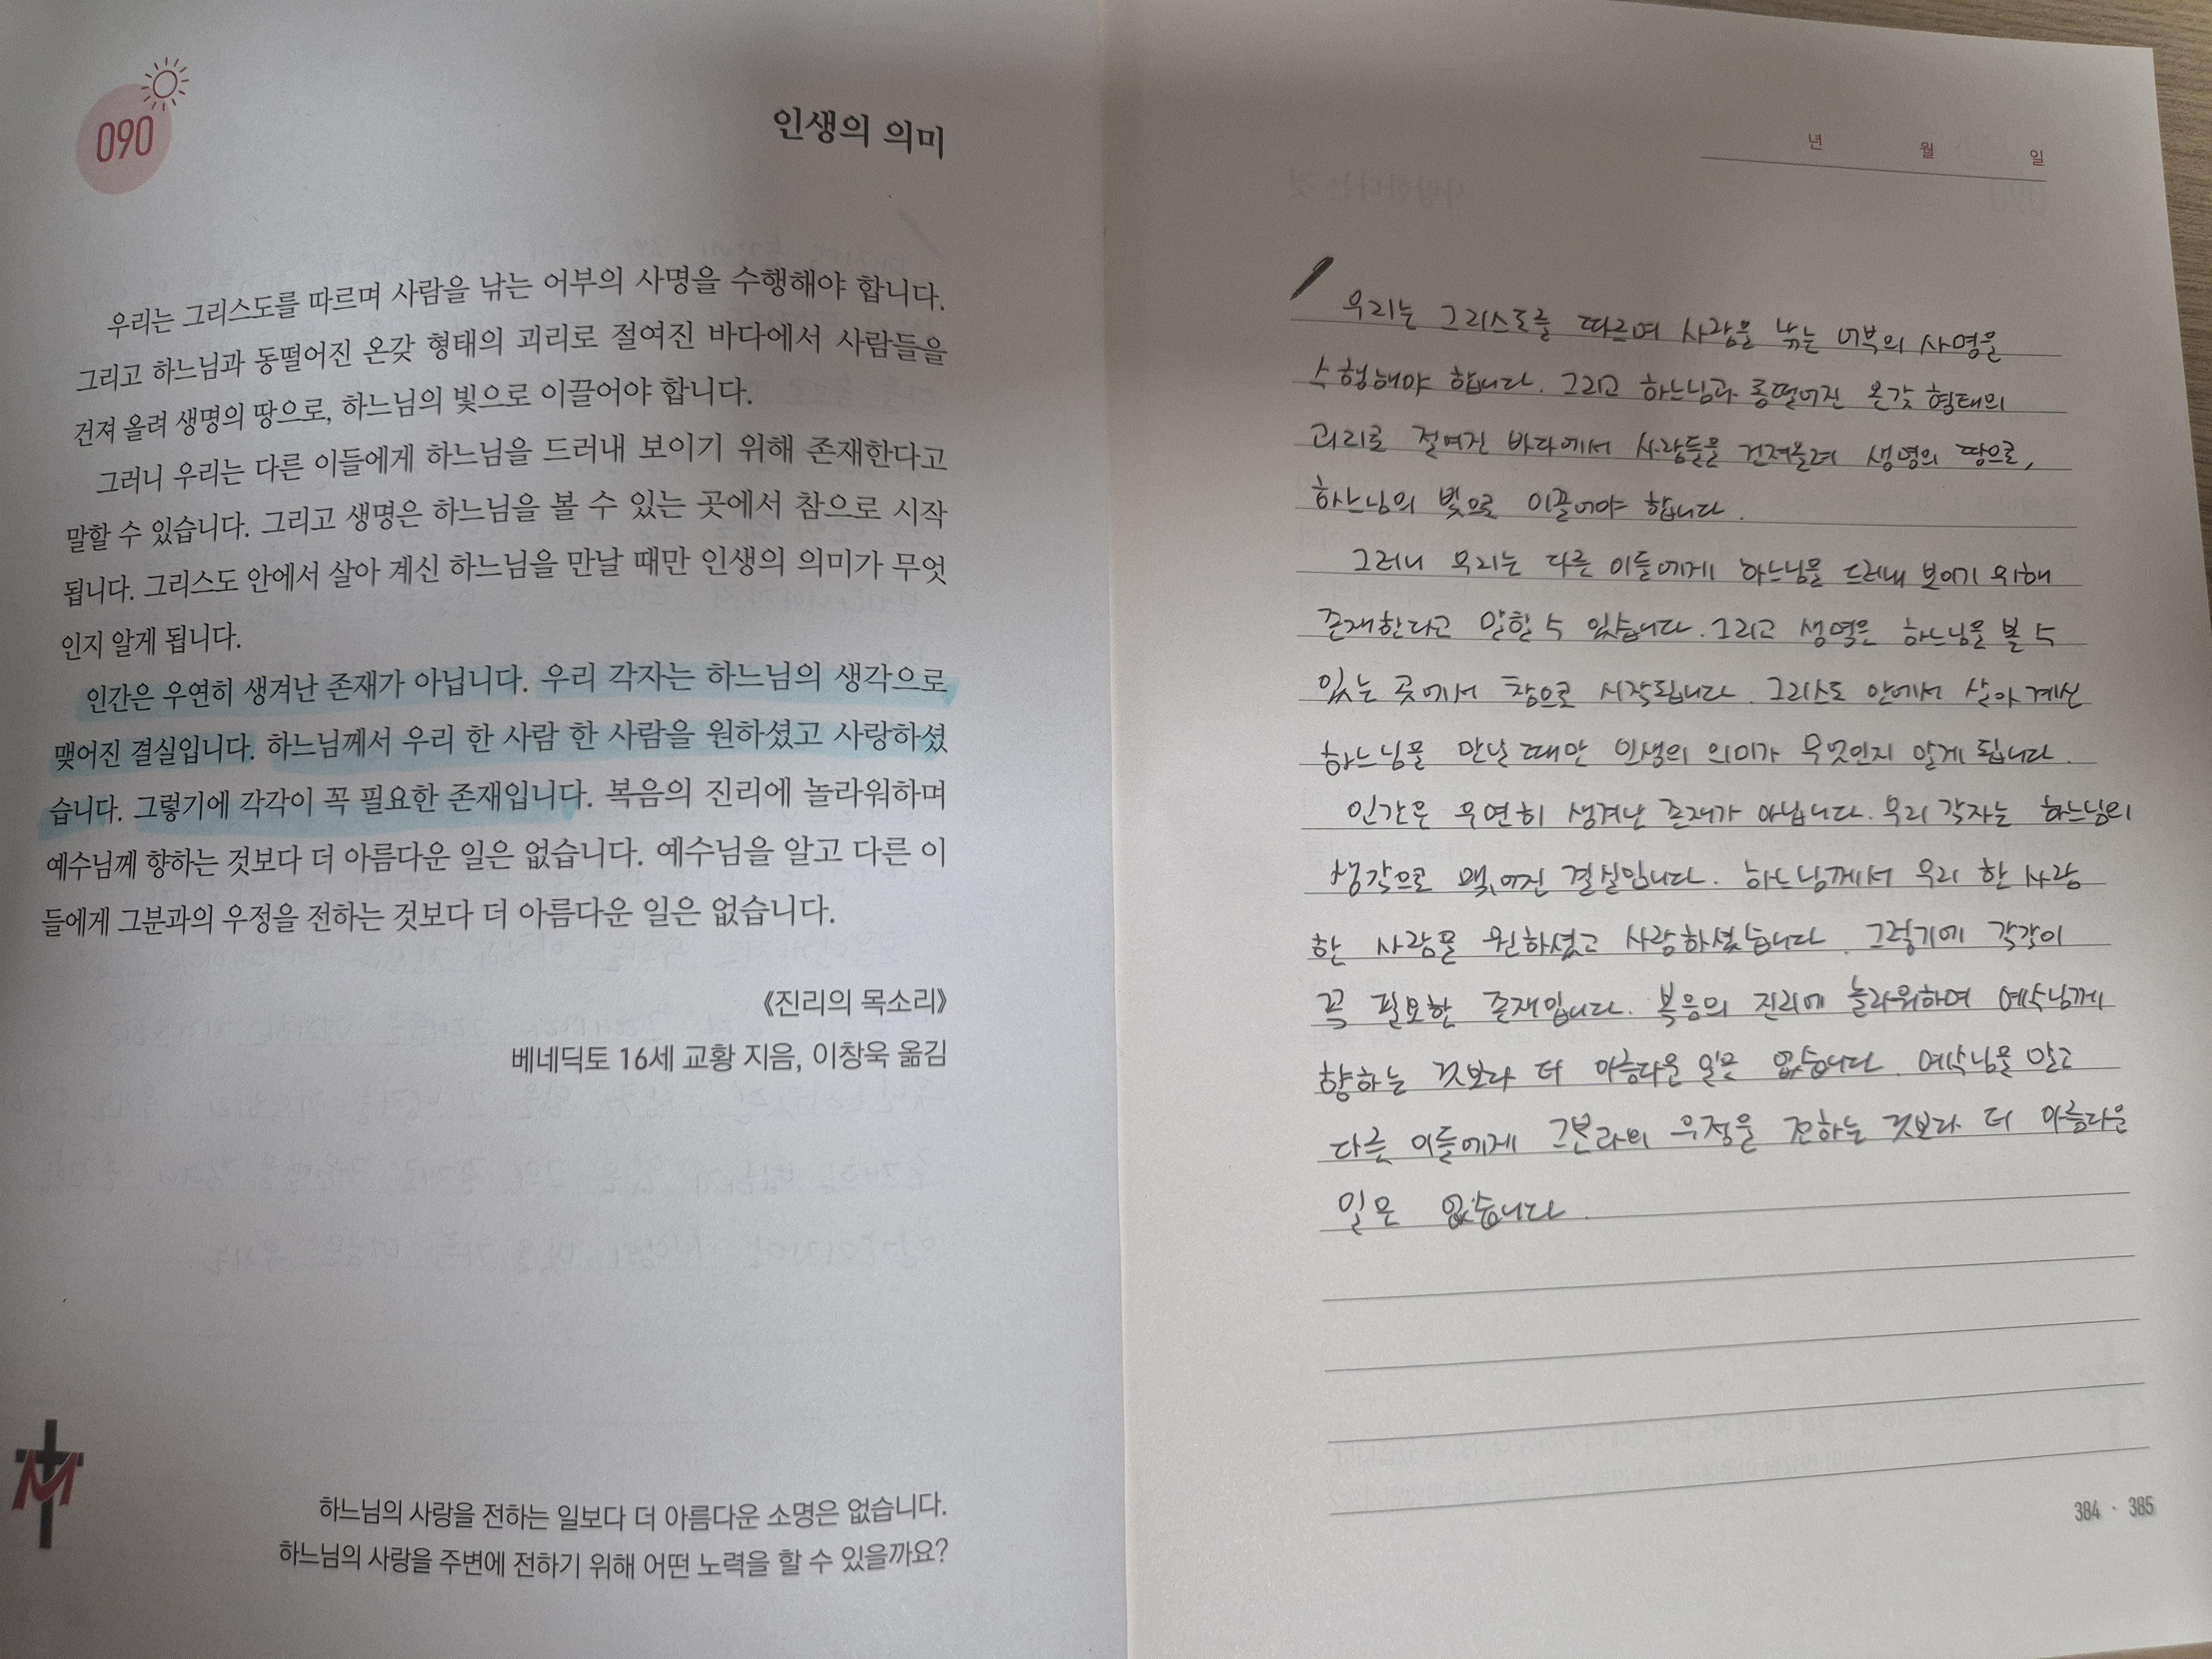 090
인생의 의미
우리는 그리스도를 따르며 사람을 낚는 어부의 사명을 수행해야 합니다.
그리고 하느님과 동떨어진 온갖 형태의 괴리로 절여진 바다에서 사람들을
건져 올려 생명의 땅으로, 하느님의 빛으로 이끌어야 합니다.
그러니 우리는 다른 이들에게 하느님을 드러내 보이기 위해 존재한다고
말할 수 있습니다. 그리고 생명은 하느님을 볼 수 있는 곳에서 참으로 시작
됩니다. 그리스도 안에서 살아 계신 하느님을 만날 때만 인생의 의미가 무엇
인지 알게 됩니다.
인간은 우연히 생겨난 존재가 아닙니다. 우리 각자는 하느님의 생각으로
맺어진 결실입니다. 하느님께서 우리 한 사람 한 사람을 원하셨고 사랑하셨
습니다. 그렇기에 각각이 꼭 필요한 존재입니다. 복음의 진리에 놀라워하며
예수님께 향하는 것보다 더 아름다운 일은 없습니다. 예수님을 알고 다른 이
들에게 그분과의 우정을 전하는 것보다 더 아름다운 일은 없습니다.
《진리의 목소리》
베네딕토 16세 교황 지음, 이창욱 옮김
하느님의 사랑을 전하는 일보다 더 아름다운 소명은 없습니다.
하느님의 사랑을 주변에 전하기 위해 어떤 노력을 할 수 있을까요?
년 월 일
우리는 그리스도를 따르며 사람을 낚는 어부의 사명을
수행해야 합니다. 그리고 하느님과 동떨어진 온갖 형태의
괴리로 절여진 바다에서 사람들을 건져올려 생명의 땅으로,
하느님의 빛으로 이끌어야 합니다.
그러니 우리는 다른 이들에게 하느님을 드러내 보이기 위해
존재한다고 말할 수 있습니다. 그리고 생명은 하느님을 볼 수
있는 곳에서 참으로 시작됩니다. 그리스도 안에서 살아계신
하느님을 만날 때만 인생의 의미가 무엇인지 알게 됩니다.
인간은 우연히 생겨난 존재가 아닙니다. 우리 각자는 하느님의
생각으로 맺어진 결실입니다. 하느님께서 우리 한 사람
한 사람을 원하셨고 사랑하셨습니다. 그렇기에 각각이
꼭 필요한 존재입니다. 복음의 진리에 놀라워하며 예수님께
향하는 것보다 더 아름다운 일은 없습니다. 예수님을 알고
다른 이들에게 그분과의 우정을 전하는 것보다 더 아름다운
일은 없습니다.
384 · 385